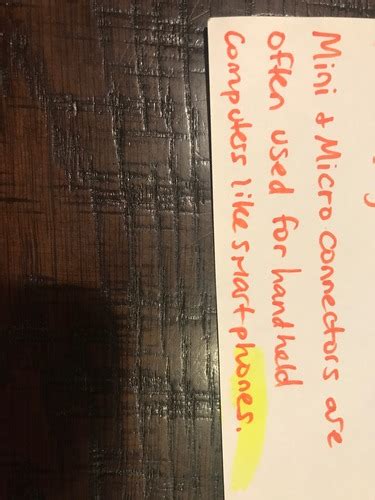 Mini & Micro connectors are
often used for handheld
computers like smartphones.